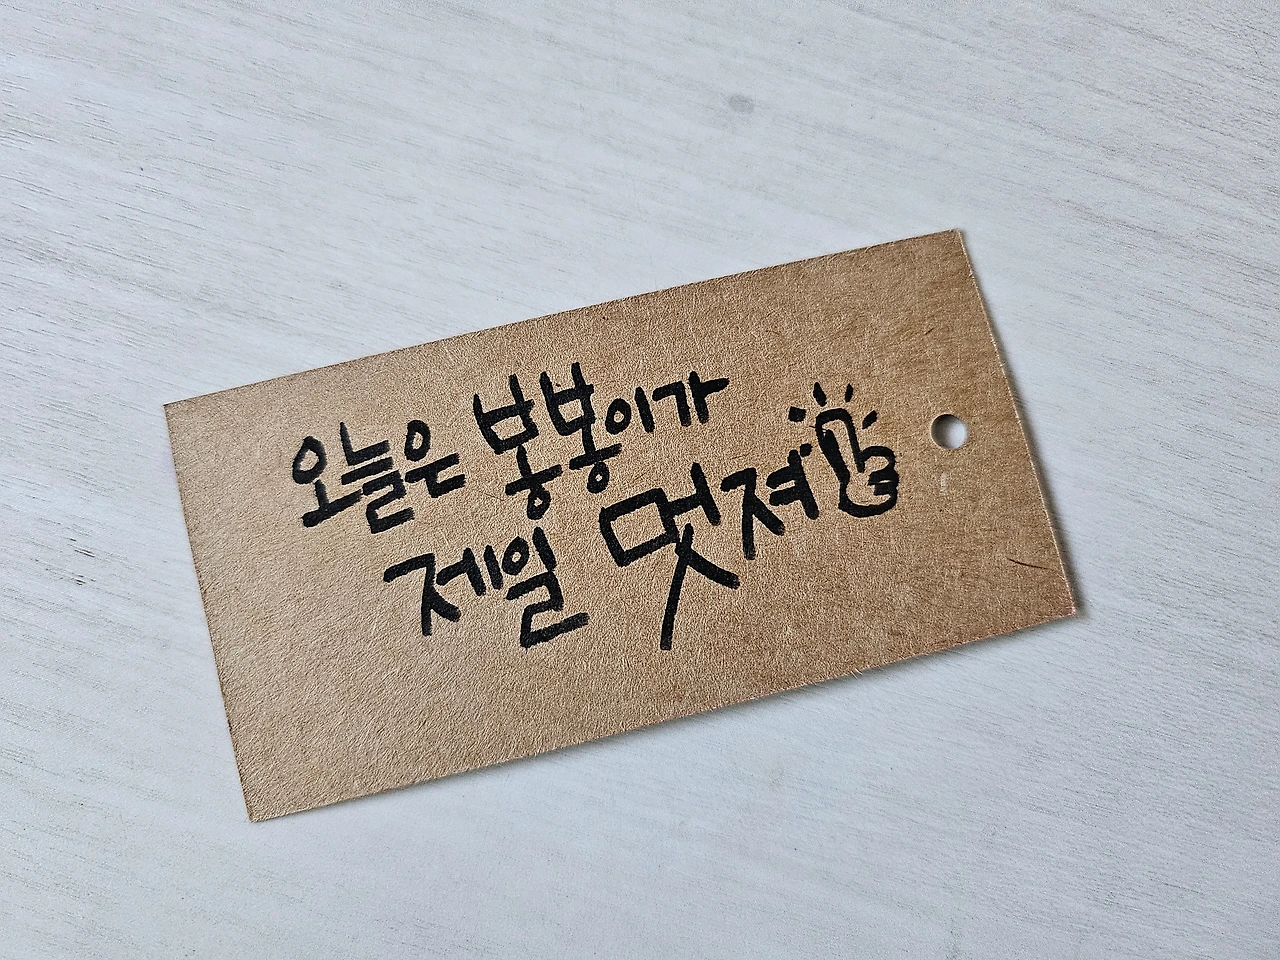 오늘은 봉봉이가
제일 멋져